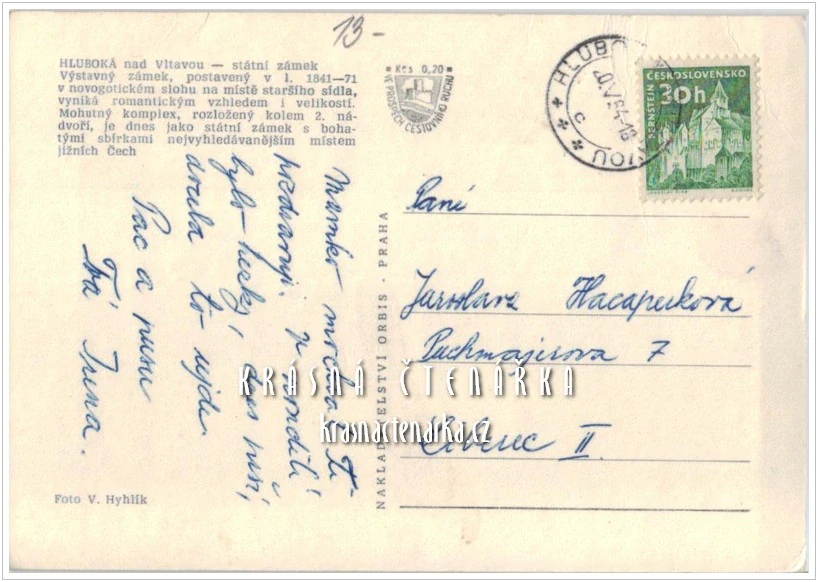 13-
HLUBOKÁ nad Vltavou — státní zámek
Výstavný zámek, postavený v l. 1841—71
v novogotickém slohu na místě staršího sídla,
vyniká romantickým vzhledem i velikostí.
Mohutný komplex, rozložený kolem 2. ná-
dvoří, je dnes jako státní zámek s boha-
tými sbírkami nejvyhledávanějším místem
jižních Čech
Kčs 0,20
VE PROSPĚCH CESTOVNÍHO RUCHU
HLUBO
VOU
C
ČESKOSLOVENSKO
30h
PERNŠTEJN
Mamko
Ti
předvařuji.
bylo hezky, dnes prší,
to ujde.
Pac a pusu
Tvá
NAKLADATELSTVÍ ORBIS - PRAHA
Paní
Jaroslava Hacaperková
Puchmajerova 7
Liberec II.
KRÁSNÁ ČTENÁŘKA
krasnactenarka.cz
Foto V. Hyhlík